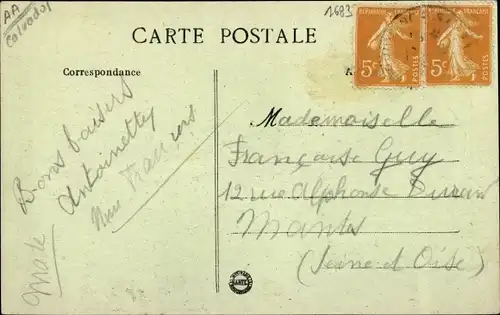 AA
Calvados
1683
CARTE POSTALE
Correspondance
RÉPUBLIQUE FRANÇAISE
5c
POSTES
5c
POSTES
Bons baisers
Antoinette
Mademoiselle
Françoise Guy
12 rue Alphonse Durand
Mantes
(Seine et Oise)
CARTE